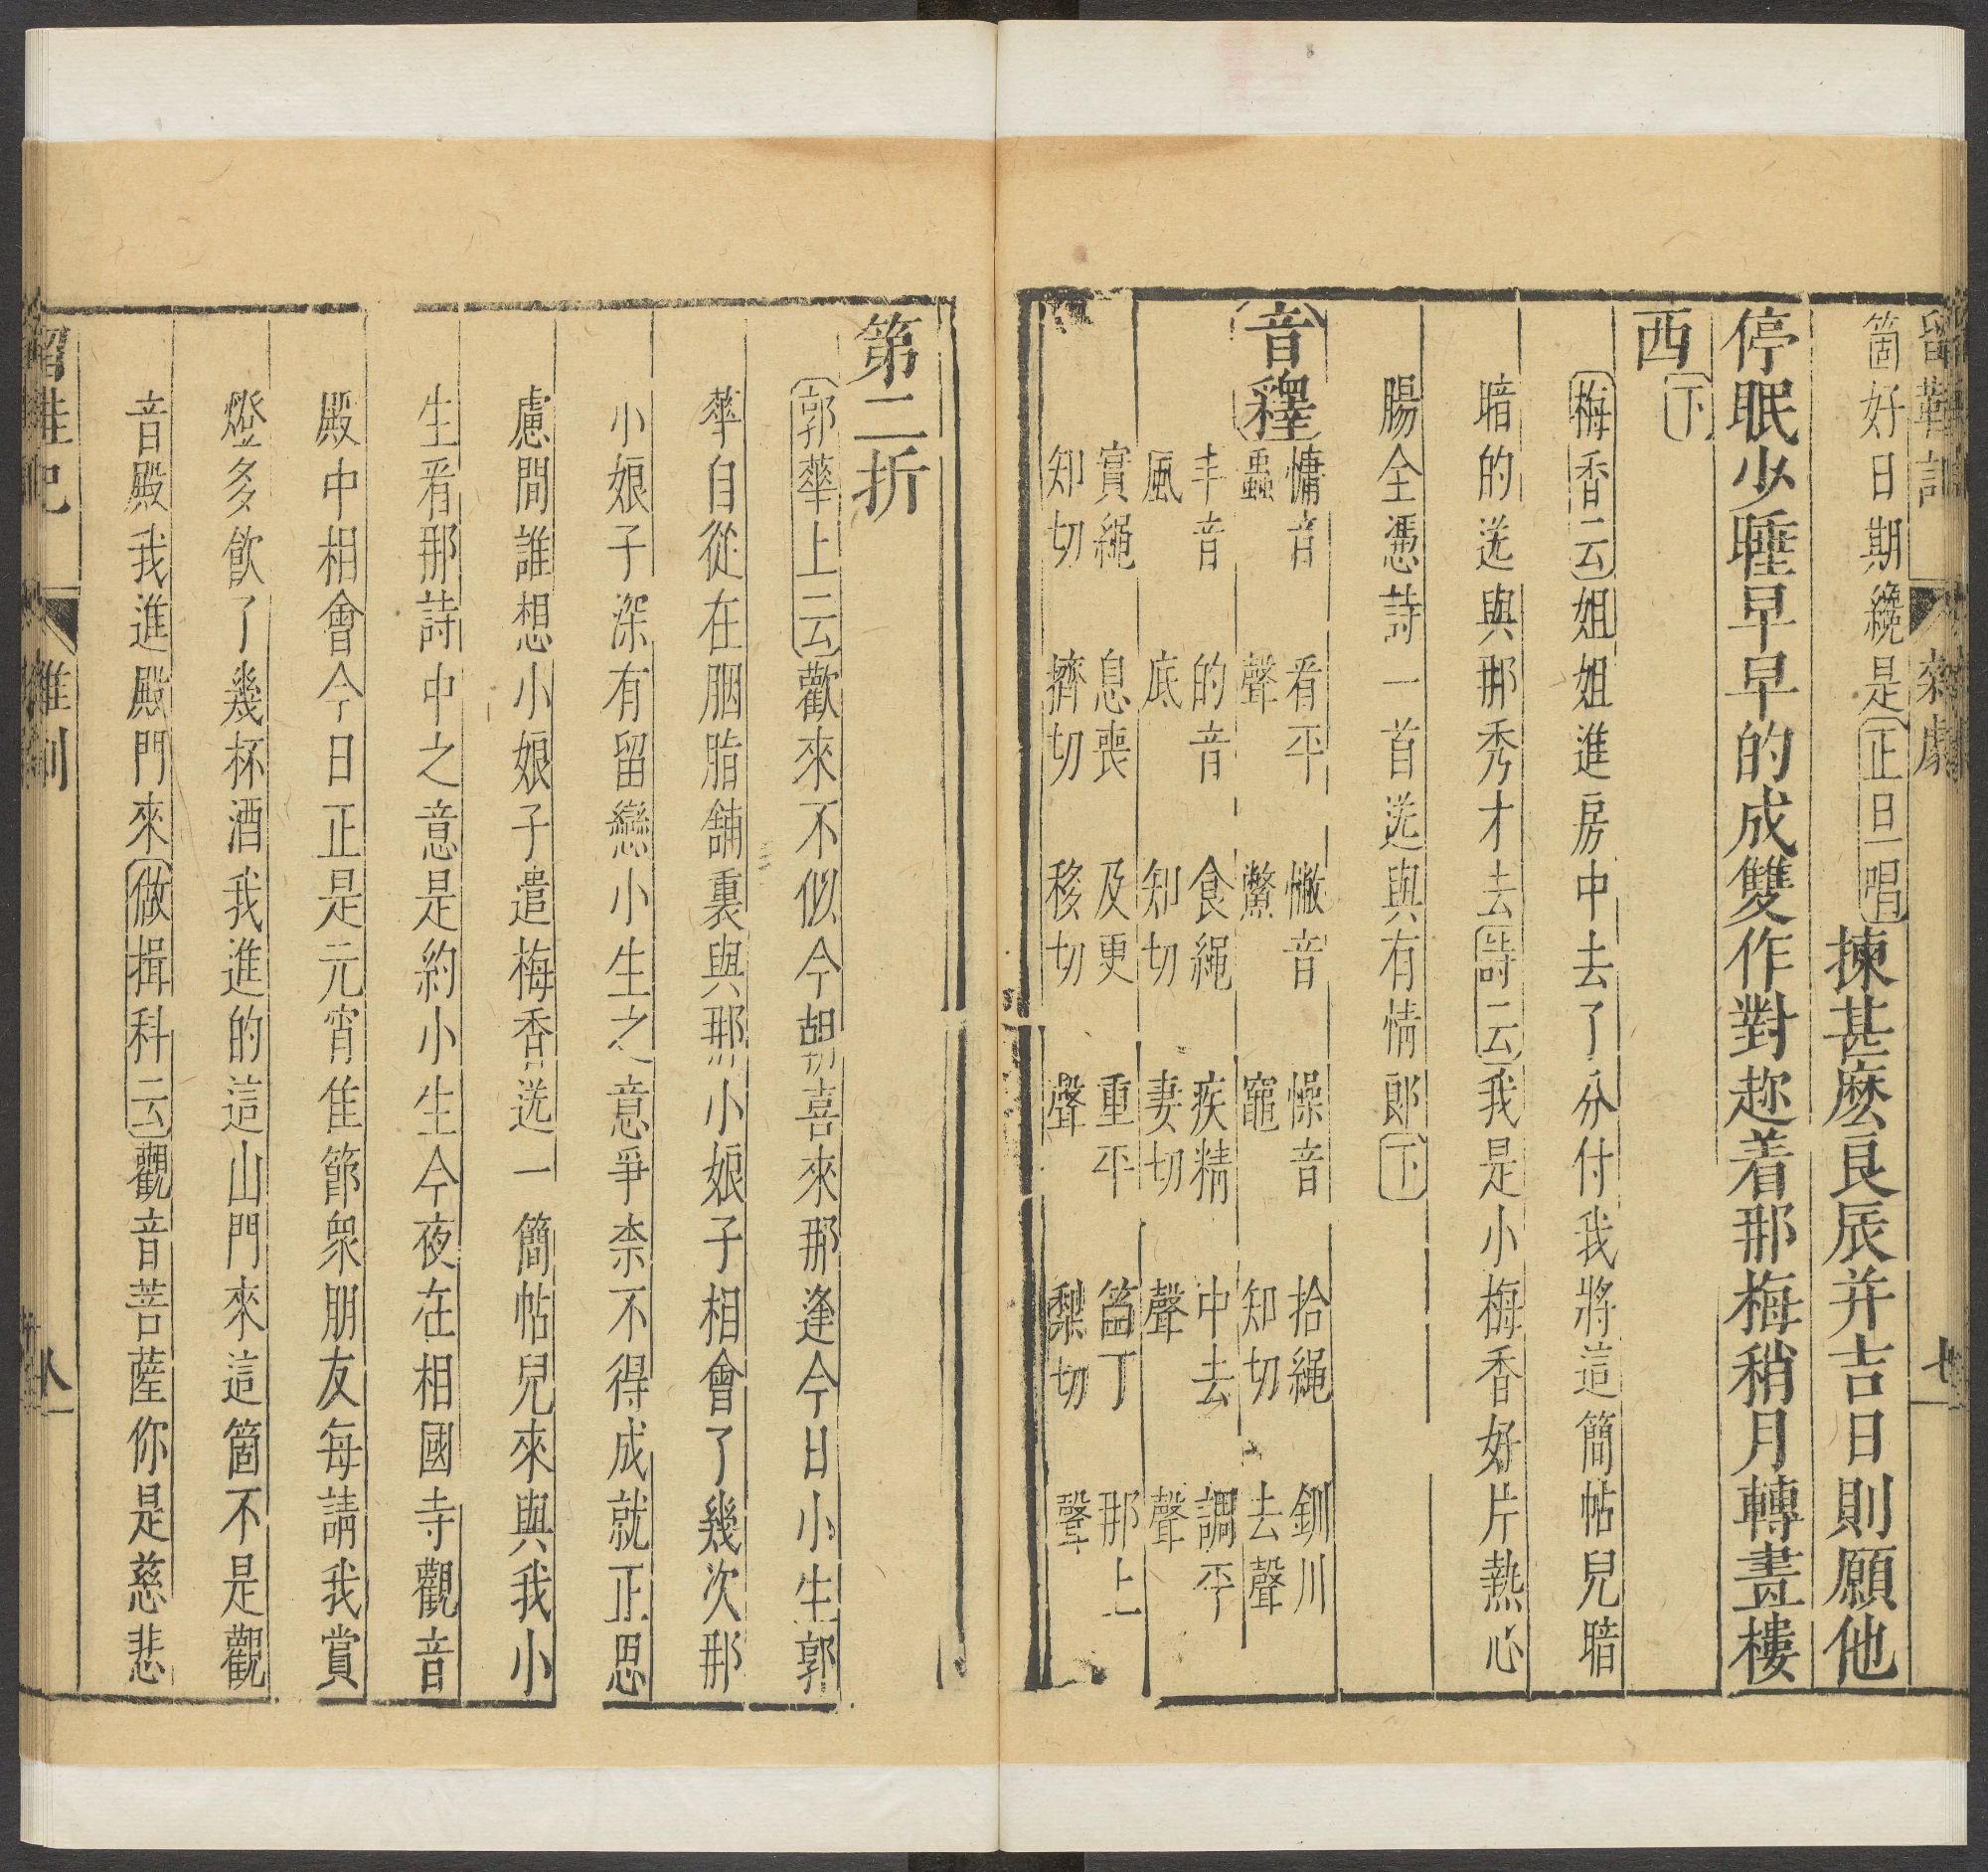 留鞋記 雜劇 七
箇好日期纔是正旦唱揀甚麽良辰并吉日則願他
停眠少睡早早的成雙作對趂着那梅稍月轉晝樓
西下
梅香云姐姐進房中去了分付我將這簡帖兒暗
暗的送與那秀才去詩云我是小梅香好片熱心
腸全憑詩一首送與有情郎下
音釋
慵音蟲 看平聲 憋音鱉 懆音竈 拾繩知切 釧川去聲
丰音風 的音底 食繩知切 疾精妻切 中去聲 調平聲
實繩知切 息喪擠切 及更移切 重平聲 笛丁梨切 那上聲
第二折
郭華上云歡來不似今朝喜來那逢今日小生郭
華自從在胭脂舖裏與那小娘子相會了幾次那
小娘子深有留戀小生之意爭柰不得成就正思
慮間誰想小娘子遣梅香送一簡帖兒來與我小
生看那詩中之意是約小生今夜在相國寺觀音
殿中相會今日正是元宵佳節眾朋友每請我賞
燈多飲了幾杯酒我進的這山門來這箇不是觀
音殿我進殿門來做揖科云觀音菩薩你是慈悲
留鞋記 雜劇 八